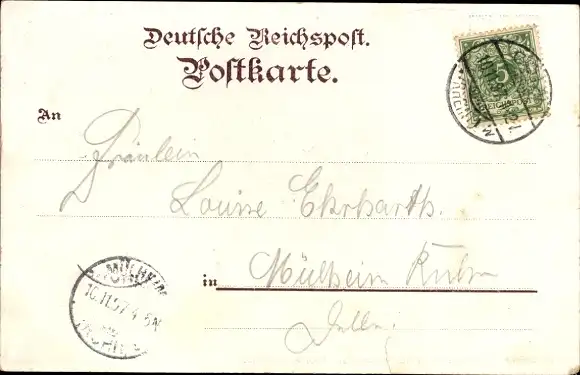 Deutsche Reichspost.
Postkarte.
An
Fräulein
Louise Ehrhardt.
in Mülheim Ruhr
5
REICHSPOST
MÜLHEIM
10.11.97 4-5N
(RUHR)